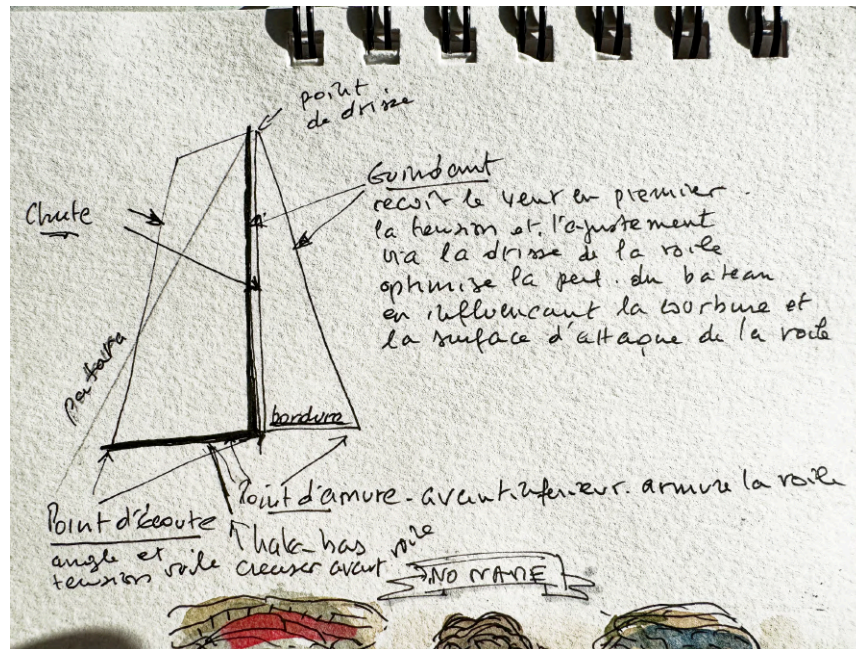 point
de drisse
Guindant
reçoit le vent en premier.
la tension et l'ajustement
via la drisse de la voile
optimise la perf. du bateau
en influençant la courbure et
la surface d'attaque de la voile
Chute
pataras
bordure
Point d'amure - avant inférieur. armure la voile
Point d'écoute
angle et
tension voile
↑ hale-bas
creuser avant voile
NO NAME